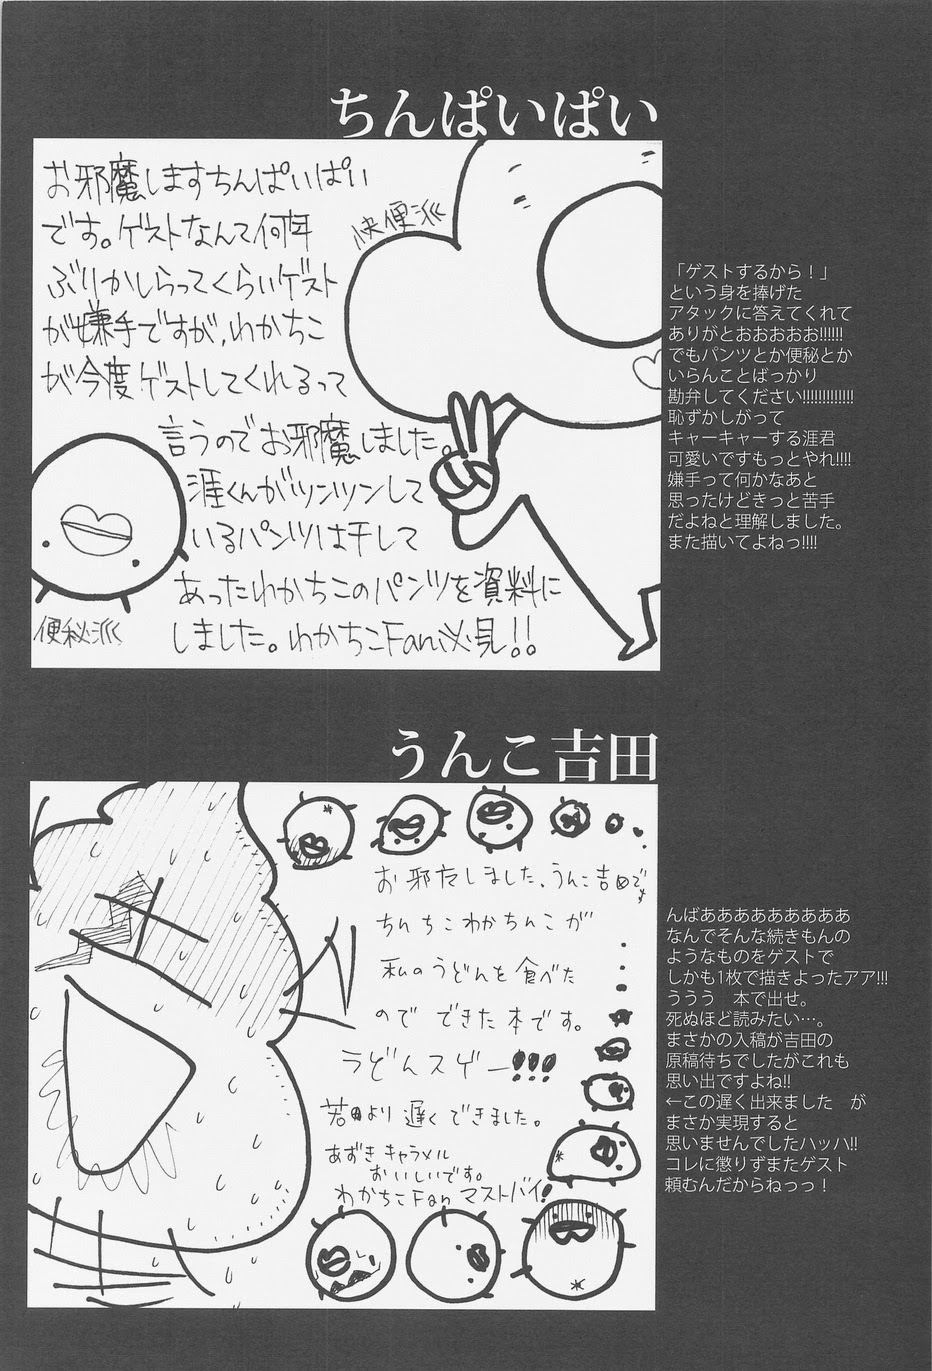 ちんぱいぱい
お邪魔しますちんぱいぱい
です。ゲストなんて何年
ぶりかしらってくらいゲスト
が嫌手ですが、わかちこ
が今度ゲストしてくれるって
言うのでお邪魔しました。
涯くんがツンツンして
いるパンツは干して
あったわかちこのパンツを資料に
しました。わかちこFan必見!!
快便派
便秘派
「ゲストするから！」
という身を捧げた
アタックに答えてくれて
ありがとおおおおお!!!!!!
でもパンツとか便秘とか
いらんことばっかり
勘弁してください!!!!!!!!!!!!!
恥ずかしがって
キャーキャーする涯君
可愛いですもっとやれ!!!!
嫌手って何かなあと
思ったけどきっと苦手
だよねと理解しました。
また描いてよねっ!!!!
うんこ吉田
お邪广しました、うんこ吉田です
ちんちこわかちんこが
私のうどんを食べた
ので できた本です。
うどんスゲー!!!
若田より遅くできました。
あずきキャラメル
おいしいです。
わかちこFanマストバイ!
んばああああああああああ
なんでそんな続きもんの
ようなものをゲストで
しかも1枚で描きよったアア!!!
ううう　本で出せ。
死ぬほど読みたい…。
まさかの入稿が吉田の
原稿待ちでしたがこれも
思い出ですよね!!
←この遅く出来ました　が
まさか実現すると
思いませんでしたハッハ!!
コレに懲りずまたゲスト
頼むんだからねっっ！